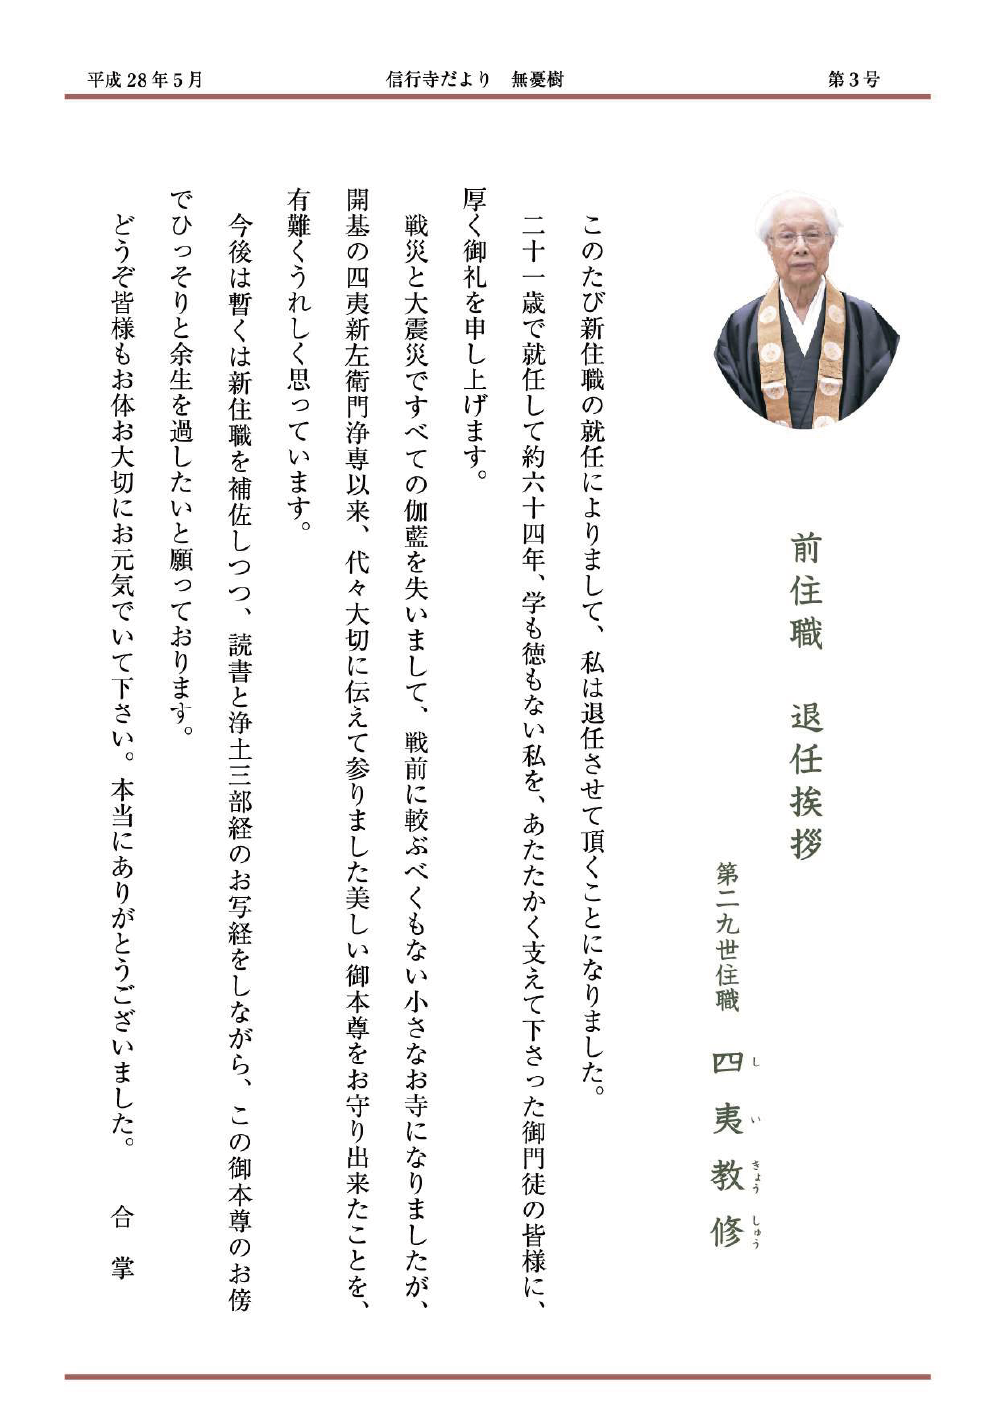 平成28年5月　信行寺だより　無憂樹　第3号
前住職　退任挨拶
第二九世住職　四夷教修
し　い　きょう　しゅう
このたび新住職の就任によりまして、私は退任させて頂くことになりました。
二十一歳で就任して約六十四年、学も徳もない私を、あたたかく支えて下さった御門徒の皆様に、
厚く御礼を申し上げます。
戦災と大震災ですべての伽藍を失いまして、戦前に較ぶべくもない小さなお寺になりましたが、
開基の四夷新左衛門浄専以来、代々大切に伝えて参りました美しい御本尊をお守り出来たことを、
有難くうれしく思っています。
今後は暫くは新住職を補佐しつつ、読書と浄土三部経のお写経をしながら、この御本尊のお傍
でひっそりと余生を過したいと願っております。
どうぞ皆様もお体お大切にお元気でいて下さい。本当にありがとうございました。　合　掌